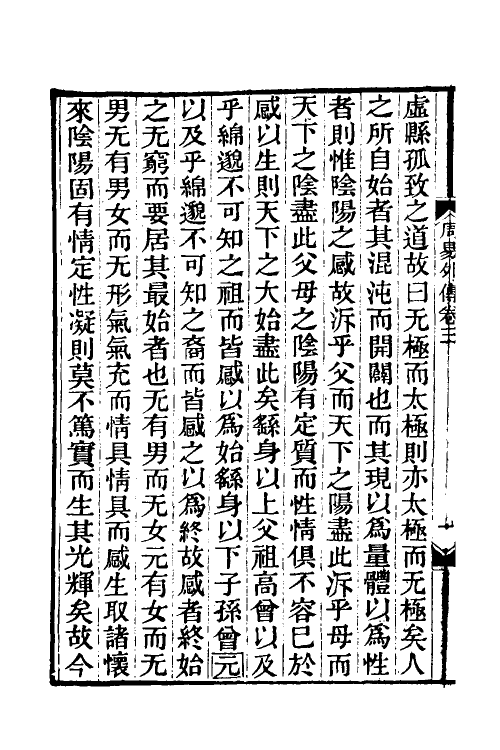 周易外傳卷三
虛縣孤致之道故曰无極而太極則亦太極而无極矣人
之所自始者其混沌而開闢也而其現以爲量體以爲性
者則惟陰陽之感故泝乎父而天下之陽盡此泝乎母而
天下之陰盡此父母之陰陽有定質而性情俱不容已於
感以生則天下之大始盡此矣繇身以上父祖高曾以及
乎綿邈不可知之祖而皆感以爲始繇身以下子孫曾元
以及乎綿邈不可知之裔而皆感之以爲終故感者終始
之无窮而要居其最始者也无有男而无女无有女而无
男无有男女而无形氣氣充而情具情具而感生取諸懷
來陰陽固有情定性凝則莫不篤實而生其光輝矣故今